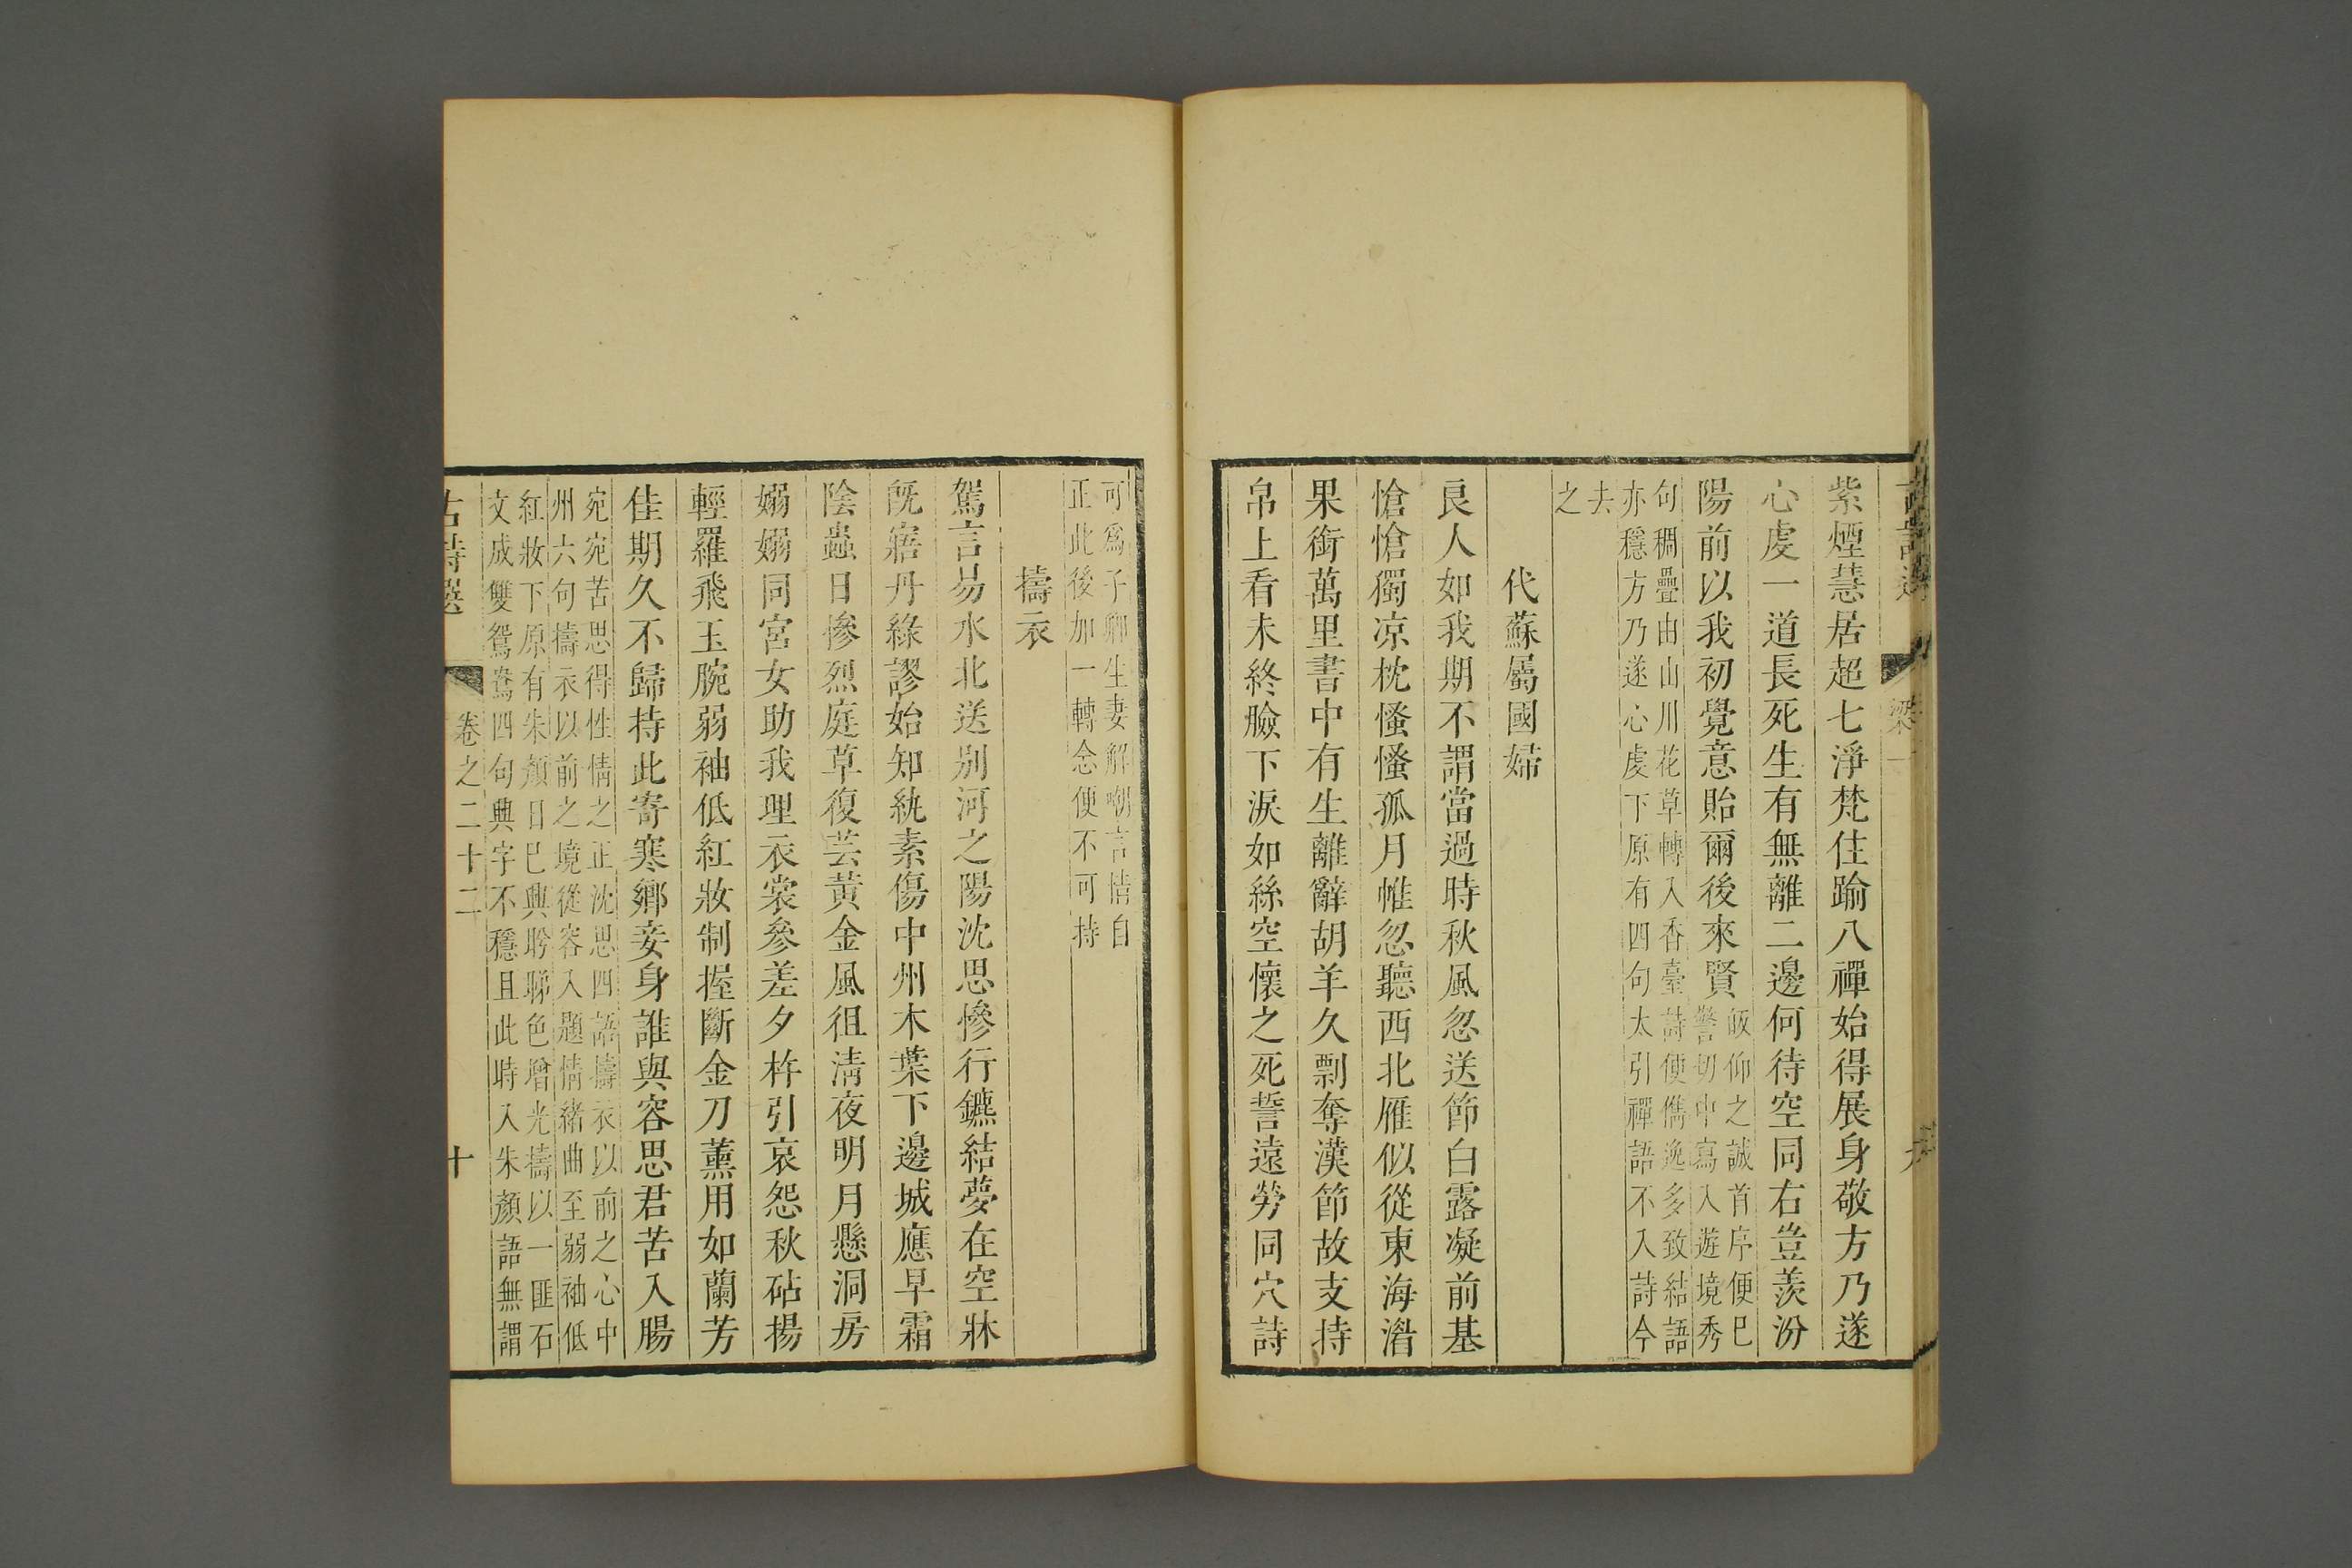 梁
紫煙慧居超七淨梵住踰八禪始得展身敬方乃遂
心虔一道長死生有無離二邊何待空同右豈羨汾
陽前以我初覺意貽爾後來賢
皈仰之誠首序便已
警切中寫入遊境秀
句稠疊由山川花草轉入香臺詩便儁逸多致結語
亦穩方乃遂心虔下原有四句太引禪語不入詩今
去
之
代蘇屬國婦
良人如我期不謂當過時秋風忽送節白露凝前基
愴愴獨凉枕慅慅孤月帷忽聽西北雁似從東海湄
果銜萬里書中有生離辭胡羊久剽奪漢節故支持
帛上看未終臉下淚如絲空懷之死誓遠勞同穴詩
可爲子卿生妻解嘲言情自
正此後加一轉念便不可持
擣衣
駕言易水北送别河之陽沈思慘行鑣結夢在空牀
既寤丹綠謬始知紈素傷中州木葉下邊城應早霜
陰蟲日慘烈庭草復芸黃金風徂清夜明月懸洞房
嫋嫋同宮女助我理衣裳參差夕杵引哀怨秋砧揚
輕羅飛玉腕弱袖低紅妝制握斷金刀薰用如蘭芳
佳期久不歸持此寄寒鄉妾身誰與容思君苦入腸
宛宛苦思得性情之正沈思四語擣衣以前之心中
州六句擣衣以前之境從容入題情緒曲至弱袖低
紅妝下原有朱顏日已興眄睇色增光擣以一匪石
文成雙鴛鴦四句興字不穩且此時入朱顏語無謂
古詩選
卷之二十二
十